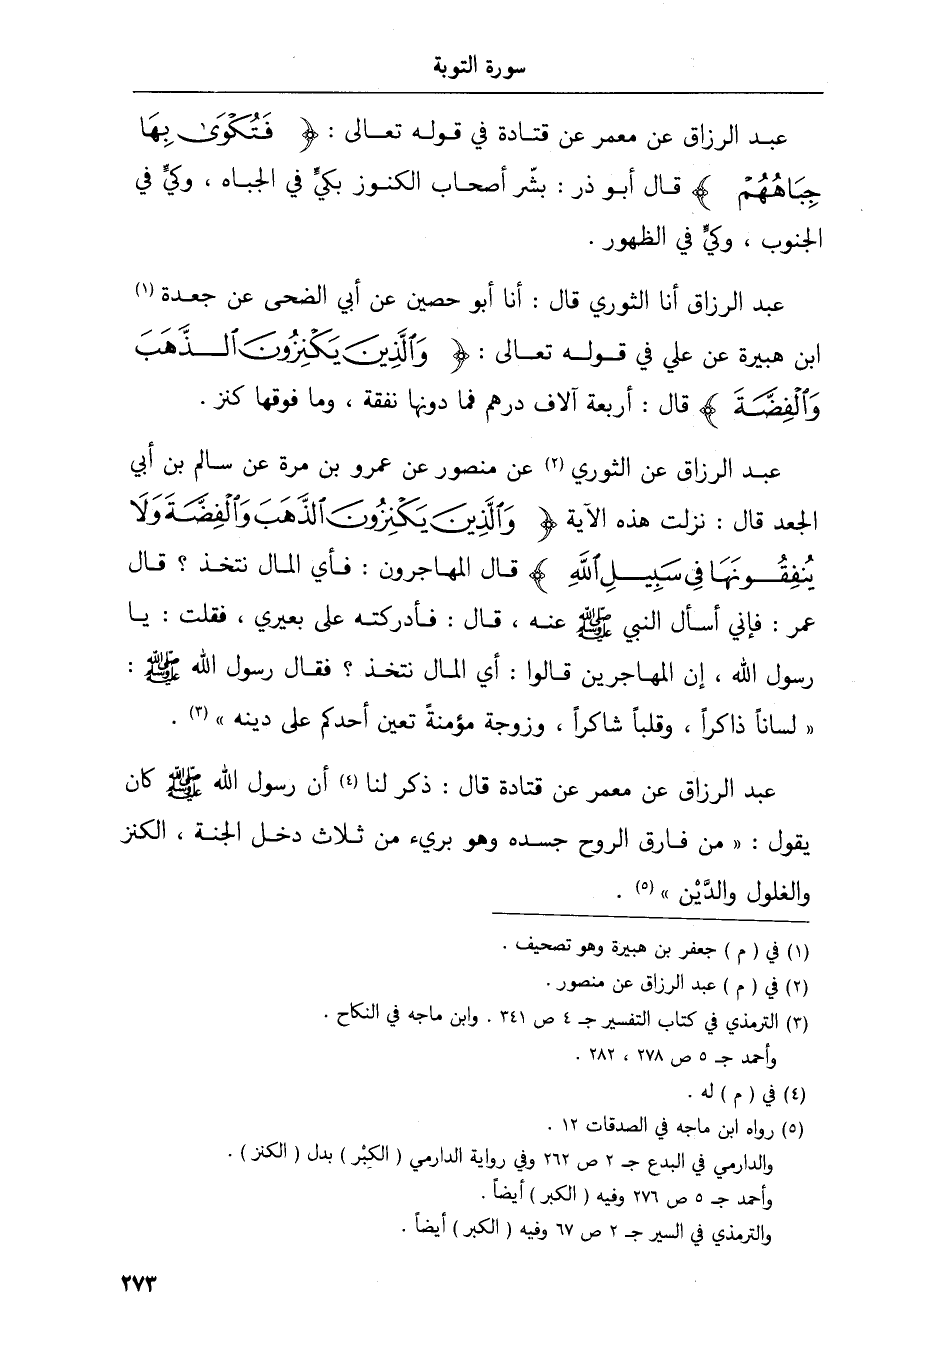 سورة التوبة
عبد الرزاق عن معمر عن قتادة في قوله تعالى : ﴿ فَتُكْوَىٰ بِهَا
جِبَاهُهُمْ ﴾ قال أبو ذر : بشّر أصحاب الكنوز بكيٍّ في الجباه ، وكيٍّ في
الجنوب ، وكيٍّ في الظهور .
عبد الرزاق أنا الثوري قال : أنا أبو حصين عن أبي الضحى عن جعدة (١)
ابن هبيرة عن علي في قوله تعالى : ﴿ وَٱلَّذِينَ يَكْنِزُونَ ٱلذَّهَبَ
وَٱلْفِضَّةَ ﴾ قال : أربعة آلاف درهم فما دونها نفقة ، وما فوقها كنز .
عبد الرزاق عن الثوري (٢) عن منصور عن عمرو بن مرة عن سالم بن أبي
الجعد قال : نزلت هذه الآية ﴿ وَٱلَّذِينَ يَكْنِزُونَ ٱلذَّهَبَ وَٱلْفِضَّةَ وَلَا
يُنفِقُونَهَا فِي سَبِيلِ ٱللَّهِ ﴾ قال المهاجرون : فأي المال نتخذ ؟ قال
عمر : فإني أسأل النبي ﷺ عنه ، قال : فأدركته على بعيري ، فقلت : يا
رسول الله ، إن المهاجرين قالوا : أي المال نتخذ ؟ فقال رسول الله ﷺ :
« لساناً ذاكراً ، وقلباً شاكراً ، وزوجة مؤمنةً تعين أحدكم على دينه » (٣) .
عبد الرزاق عن معمر عن قتادة قال : ذكر لنا (٤) أن رسول الله ﷺ كان
يقول : « من فارق الروح جسده وهو بريء من ثلاث دخل الجنة ، الكنز
والغلول والدَّيْن » (٥) .
(١) في ( م ) جعفر بن هبيرة وهو تصحيف .
(٢) في ( م ) عبد الرزاق عن منصور .
(٣) الترمذي في كتاب التفسير جـ ٤ ص ٣٤١ . وابن ماجه في النكاح .
وأحمد جـ ٥ ص ٢٧٨ ، ٢٨٢ .
(٤) في ( م ) له .
(٥) رواه ابن ماجه في الصدقات ١٢ .
والدارمي في البدع جـ ٢ ص ٢٦٢ وفي رواية الدارمي ( الكِبْر ) بدل ( الكنز ) .
وأحمد جـ ٥ ص ٢٧٦ وفيه ( الكبر ) أيضاً .
والترمذي في السير جـ ٢ ص ٦٧ وفيه ( الكبر ) أيضاً .
٢٧٣